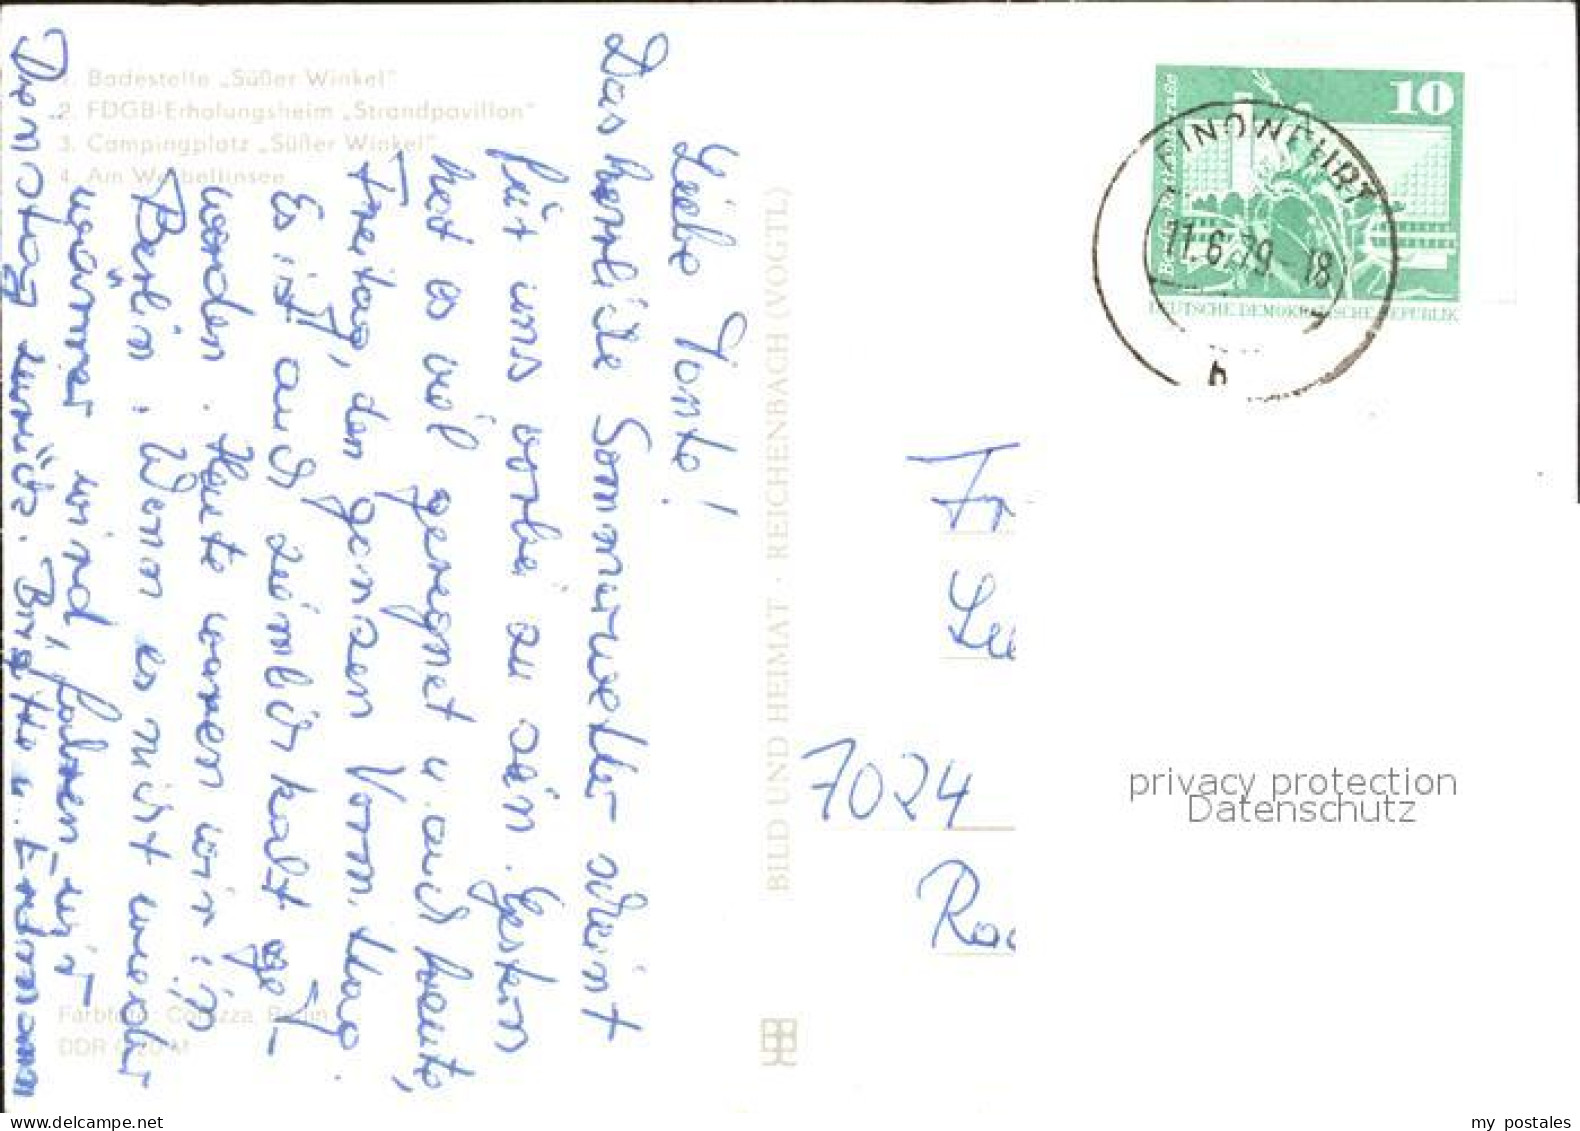 1. Badestelle „Süßer Winkel"
2. FDGB-Erholungsheim „Strandpavillon"
3. Campingplatz „Süßer Winkel"
4. Am Werbellinsee
Liebe Tante!
Das herrliche Sommerwetter scheint
für uns vorbei zu sein. Gestern
hat es viel geregnet u. auch heute,
Freitag, den ganzen Vorm. ttag.
Es ist auch ziemlich kalt ge-
worden. Heute waren wir in
Berlin. Wenn es nicht wieder
wärmer wird, fahren wir
Dienstag zurück. Brigitte u.
BILD UND HEIMAT · REICHENBACH (VOGTL)
Farbfoto: Corazza, Berlin
DDR 0,20 M
10
DEUTSCHE DEMOKRATISCHE REPUBLIK
FINOWFURT
11.6.79-18
b
Fr
7024
privacy protection
Datenschutz
www.delcampe.net
my postales